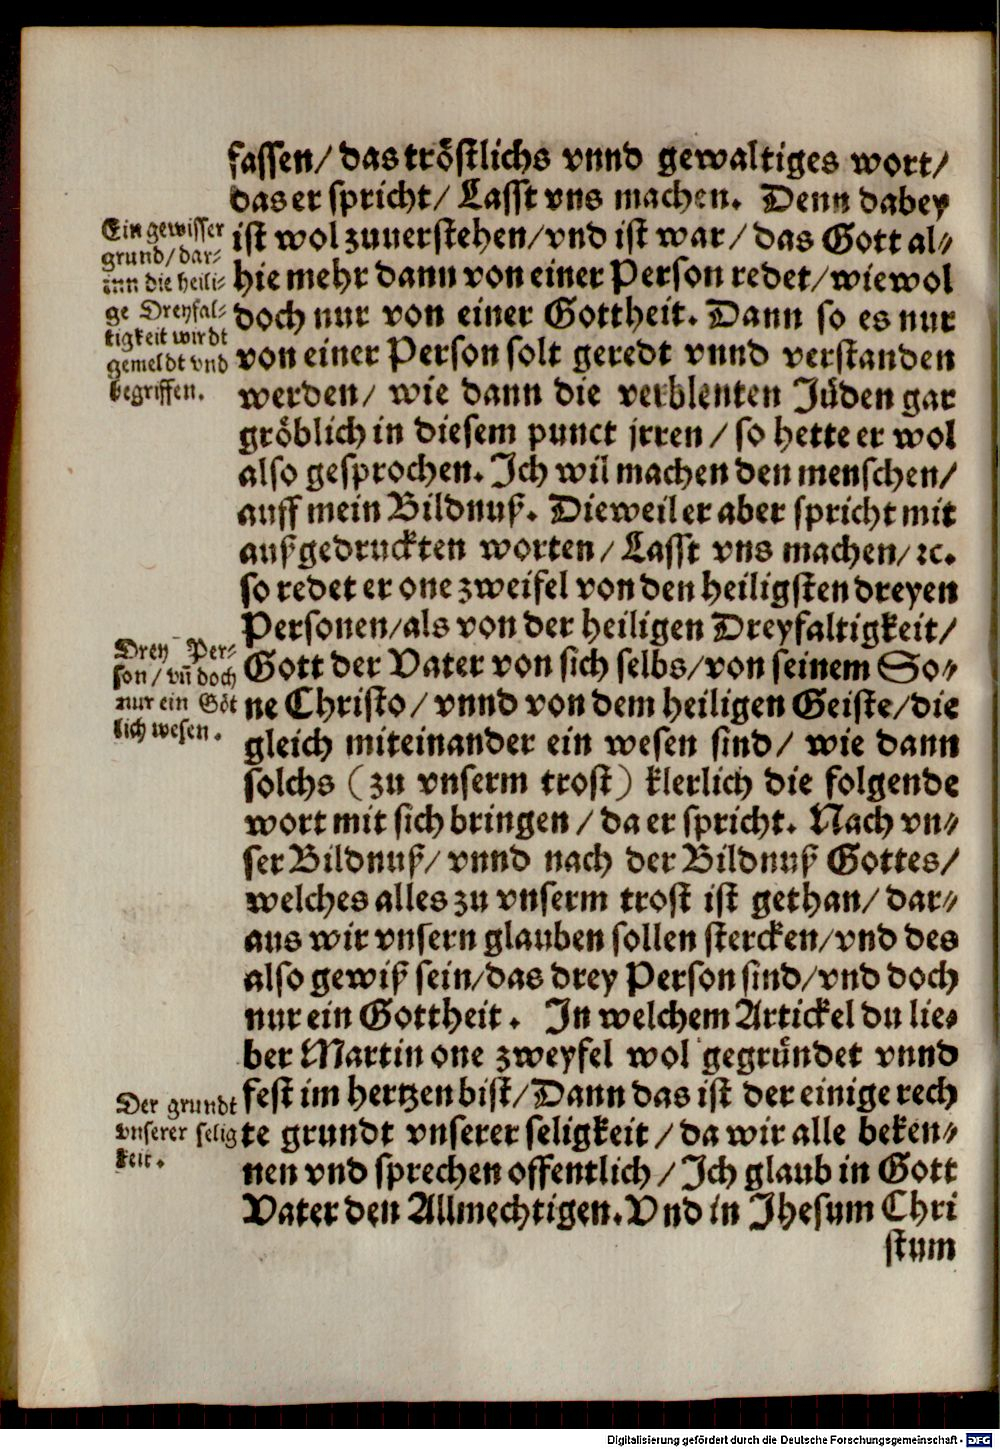 fassen/ das tröstlichs vnnd gewaltiges wort/
das er spricht/ Lasst vns machen. Denn dabey
ist wol zuuerstehen/vnd ist war/ das Gott al⸗
hie mehr dann von einer Person redet/wiewol
doch nur von einer Gottheit. Dann so es nur
von einer Person solt geredt vnnd verstanden
werden/ wie dann die verblenten Jüden gar
gröblich in diesem punct jrren/ so hette er wol
also gesprochen. Ich wil machen den menschen/
auff mein Bildnuß. Dieweil er aber spricht mit
außgedruckten worten/ Lasst vns machen/ ꝛc.
so redet er one zweifel von den heiligsten dreyen
Personen/als von der heiligen Dreyfaltigkeit/
Gott der Vater von sich selbs/von seinem So⸗
ne Christo/ vnnd von dem heiligen Geiste/die
gleich miteinander ein wesen sind/ wie dann
solchs (zu vnserm trost) klerlich die folgende
wort mit sich bringen/ da er spricht. Nach vn⸗
ser Bildnuß/ vnnd nach der Bildnuß Gottes/
welches alles zu vnserm trost ist gethan/ dar⸗
aus wir vnsern glauben sollen stercken/vnd des
also gewiß sein/das drey Person sind/vnd doch
nur ein Gottheit. In welchem Artickel du lie⸗
ber Martin one zweyfel wol gegründet vnnd
fest im hertzen bist/Dann das ist der einige rech
te grundt vnserer seligkeit/ da wir alle beken⸗
nen vnd sprechen offentlich/ Ich glaub in Gott
Vater den Allmechtigen. Vnd in Jhesum Chri
stum
Ein gewisser
grund/ dar⸗
inn die heili⸗
ge Dreyfal⸗
tigkeit wirdt
gemeldt vnd
begriffen.
Drey Per⸗
son/ vñ doch
nur ein Göt
lich wesen.
Der grundt
vnserer selig
keit.
Digitalisierung gefördert durch die Deutsche Forschungsgemeinschaft - DFG